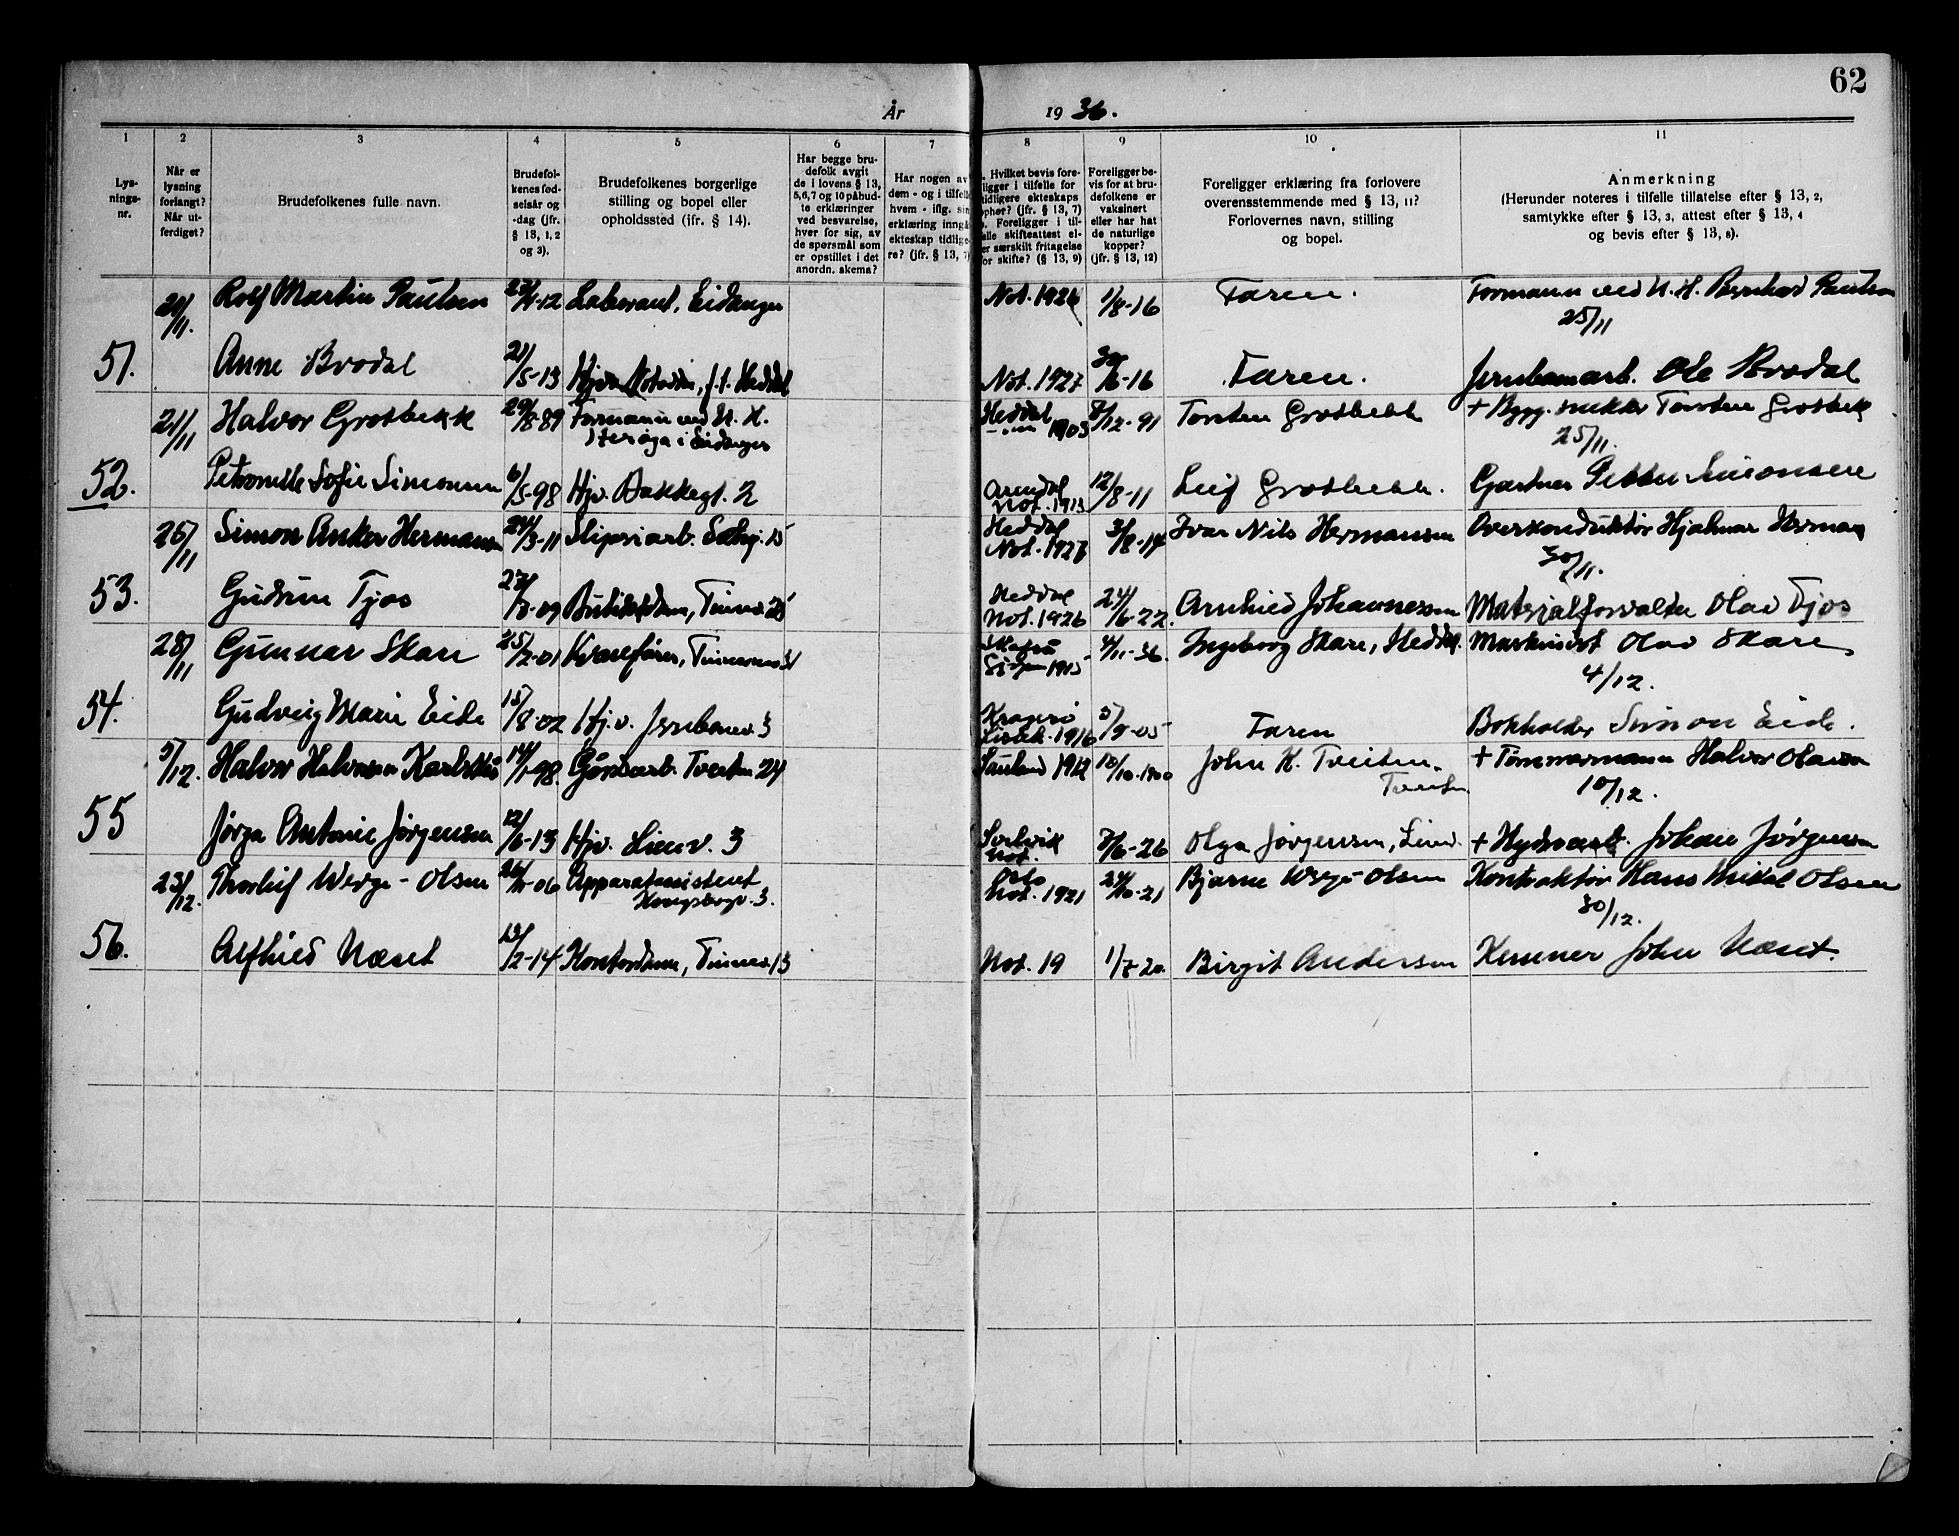 62
År 1936.
1 2 3 4 5 6 7 8 9 10 11
Lys-
nings-
nr.
Når er
lysning
forlangt?
Når ut-
ferdiget?
Brudefolkenes fulle navn.
Brudefol-
kenes fød-
selsår og
-dag (jfr.
§ 13, 1, 2
og 3).
Brudefolkenes borgerlige
stilling og bopel eller
opholdssted (jfr. § 14).
Har begge bru-
defolk avgit
de i lovens § 13,
5,6,7 og 10 påbud-
te erklæringer
ved besvarelse,
hver for sig, av
de spørsmål som
er opstillet i det
anordn. skema?
Har nogen av
dem - og i tilfelle
hvem - iflg. sin
erklæring inngå
ekteskap tidlige-
re? (jfr. § 13, 7)
Hvilket bevis fore-
ligger i tilfelle for
tidligere ekteskaps
ophør? (jfr. § 13, 7)
Foreligger i til-
felle skifteattest el-
er særskilt fritagelse
for skifte? (§ 13, 9)
Foreligger be-
vis for at bru-
defolkene er
vaksinert
eller har hat
de naturlige
kopper?
(jfr. § 13, 12)
Foreligger erklæring fra forlovere
overensstemmende med § 13, 11?
Forlovernes navn, stilling
og bopel.
Anmerkning
(Herunder noteres i tilfelle tillatelse efter § 13, 2,
samtykke efter § 13, 3, attest efter § 13, 4
og bevis efter § 13, 8).
21/11. Rolf Martin Paulsen 12 Laborant, Eidanger Not. 1926 1/8-16 Faren. Formann ved N. H. Bernhard Paulsen
25/11
51. Anne Brodal 21/5-13 Hjv. Notodden, f. t. Heddal Not. 1927 30/6-16 Faren. Jernbanearb. Ole Brodal
21/11 Halvor Grosbekk 29/8-89 Formann ved N. H. Heddal 1903 8/12-91 Torsten Grosbekk + Bygg.snekker Torsten Grosbekk
Herøya i Eidanger
25/11.
52. Petronelle Sofie Simonsen 6/5-98 Hjv. Bakkegt. 2 Arendal Not. 1913 12/8-11 Leif Grosbekk. Gartner Petter Simonsen
26/11 Simon Anker Hermansen 24/3-11 Sliperiarb. 15 Heddal Not. 1927 3/8-14 Ivar Nils Hermansen Overkonduktør Hjalmar Herman
30/11.
53. Gudrun Tjos 27/ -09 Butikkdam, Tinnes. 25 Heddal Not. 1926 24/6-22. Arnhild Johannessen Materialforvalter Olav Tjos
28/11 Gunnar Skare 25/2-01 Kranfører, 1915 4/11-36. Ingeborg Skare, Heddal. Maskinist Olav Skare
4/12.
54. Gudveig Marie Eide 15/8-02 Hj.v. Jernbanev. 3 Kragerø 1916 5/9-05 Faren Bokholder Simon Eide.
5/12. Halvor Halvorsen 14/1-98. Tveiten 24 Sauland 1912 10/10-1900 John K. Tveiten. + Tømmermann Halvor Olavson
Tveiten
10/12.
55 Jørga Antonie Jørgensen 12/6-13 Hjv. Lienv. 3 Not. 7/6-26 Olga Jørgensen, Lienv. + Hydroarb. Johan Jørgensen
23/12. Thorleif Werge-Olsen -06 Apparatassistent Oslo Not. 1921 24/10-21 Bjarne Werge-Olsen Kontraktør Hans Mikal Olsen
Kongsbergv. 3.
30/12.
56. Alfhild Næset 13/2-14 Kontordam, Tinnes. 13 Not. 19 1/7-20. Birgit Andersen Kemner John Næset.